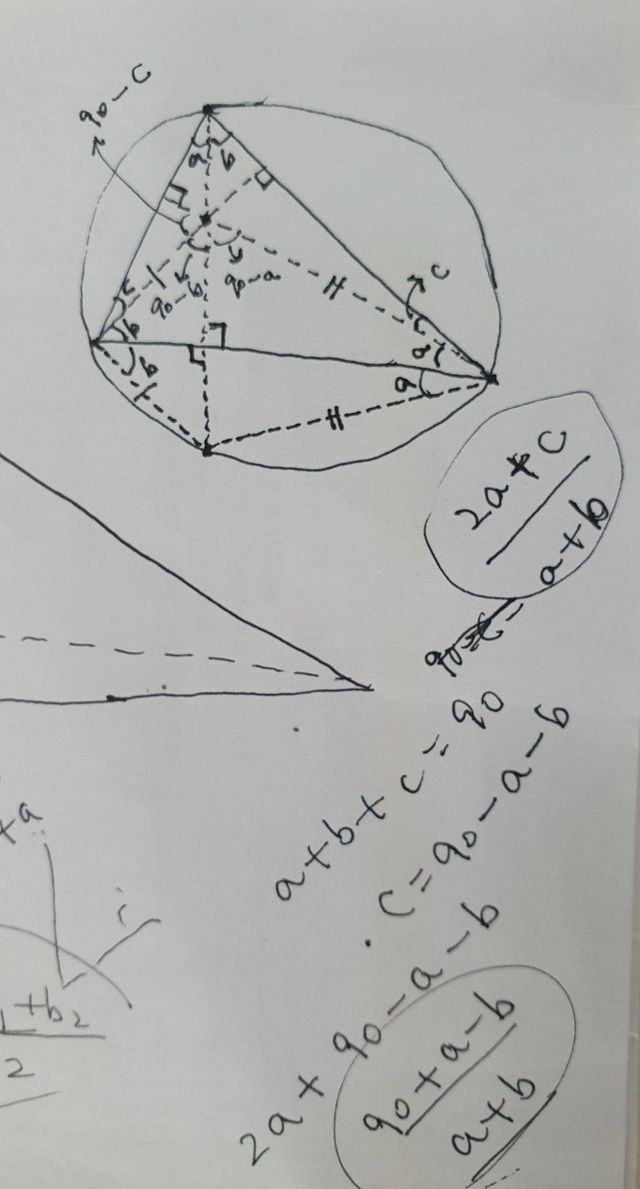 90 - C
a b
c
90-b 90-a
c
b
b
b
a
2a + C
a+b
a+b+c = 90
C = 90 - a - b
2a + 90 - a - b
90 + a - b
a+b
+a
+b2
2